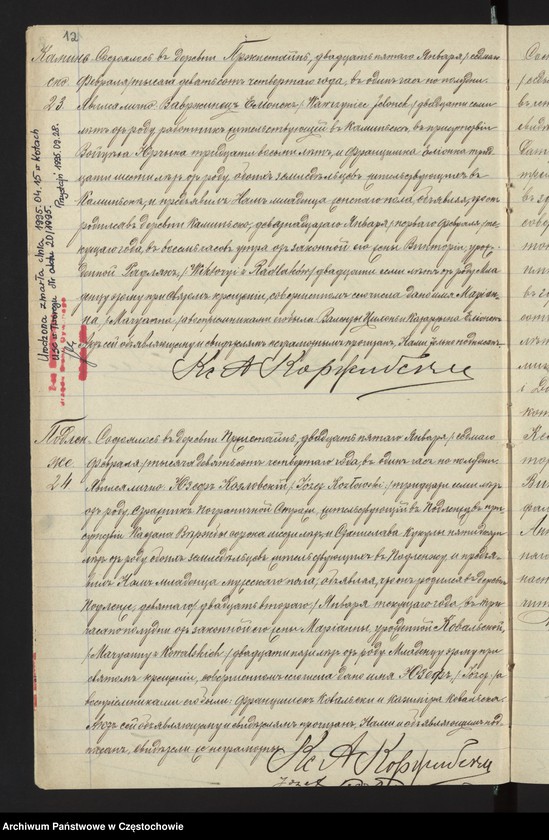 12
Камень Состоялось въ деревни Пржистайнь, двадцать пятаго Января /седмаго
ско. Февраля/ тысяча девятьсотъ четвертаго года, въ одинъ часъ по полудни.
23. Явился лично Вавржинецъ /Wawrzyniec двадцати семи
лѣтъ отъ роду работникъ жительствующій въ Каминьскѣ, въ присутствіи
Войцѣха тридцати восьми лѣтъ, и Францишка трид
цати шести лѣтъ отъ роду обоихъ земледѣльцовъ жительствующихъ въ
Каминьскѣ, и предъявилъ Намъ младенца женскаго пола, объявляя, что онъ
родился въ деревни Каминьско, девятнадцатаго Января /перваго Февраля/ те
кущаго года, въ восемь часовъ утра отъ законной его жены Викторіи, урож
денной Радлакъ, /Wiktoryi z Radlaków/ двадцати семи лѣтъ отъ роду Мла
денцу этому при Святомъ крещеніи, совершенномъ сего числа дано имя Маріан
на, /Maryanna/ а воспріемниками его были и Казимира
Актъ сей объявляющему и свидѣтелямъ неграмотнымъ прочтенъ, Нами только подписанъ.
Кс А Коржибскій
Urodzona zmarła dnia 1995.04.15 w Kotach
USC w Tworogu Nr aktu 20/1995.
Przystajń 1995.09.28.
Подлен Состоялось въ деревни Пржистайнь, двадцать пятаго Января /седмаго
же Февраля/ тысяча девятьсотъ четвертаго года, въ одинъ часъ по полудни.
24 Явился лично Юзефъ Козловскій /Józef Kozłowski/ тридцати семи лѣтъ
отъ роду, Стражникъ пограничной Стражи, жительствующій въ Подленжу въ при
сутствіи сорока шести лѣтъ и Станислава Кукулы пятидесяти
лѣтъ отъ роду обоихъ земледѣльцовъ жительствующихъ въ Подленжу и предъя
вилъ Намъ младенца мужескаго пола, объявляя, что онъ родился въ деревни
Подленже, девятаго /двадцать втораго/ Января текущаго года, въ три
часа по полудни отъ законной его жены Маріанны, урожденной Ковальской,
/Maryanny z Kowalskich/ двадцати пяти лѣтъ отъ роду Младенцу этому при
святомъ крещеніи, совершенномъ сего числа дано имя Юзефъ, /Józef/ а
воспріемниками его были: Францишекъ Ковальски и Казимира Ковальска.
Актъ сей объявляющему и свидѣтелямъ прочтенъ, Нами и объявляющимъ под
писанъ, свидѣтели неграмотны
Кс А Коржибскій
Józef
Archiwum Państwowe w Częstochowie